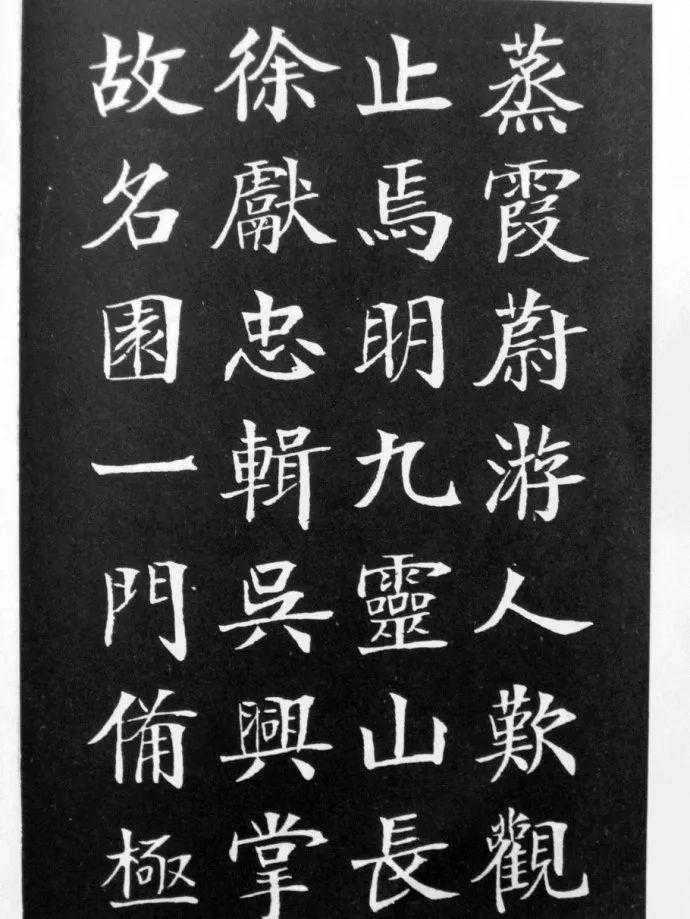 蒸霞蔚游人歎觀
止焉明九靈山長
徐獻忠輯吳興掌
故名園一門俻極